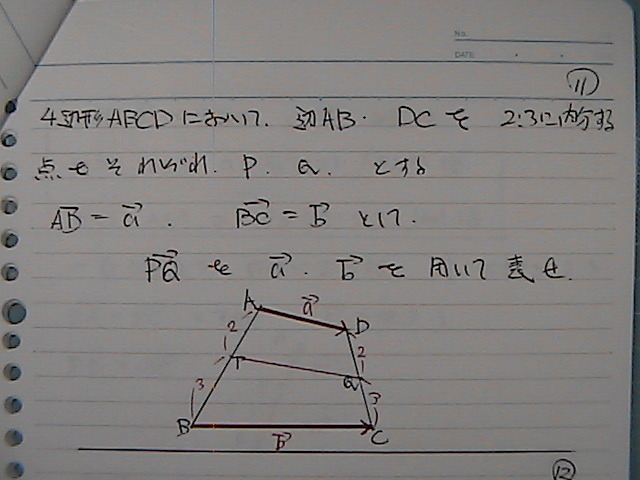 No.
DATE
11
4辺形ABCDにおいて. 辺AB. DCを 2:3に内分する
点をそれぞれ. P. Q. とする
AB = a . BC = b として.
PQ を a . b を用いて表せ.
A a D
2 2
P Q
3 3
B b C
12